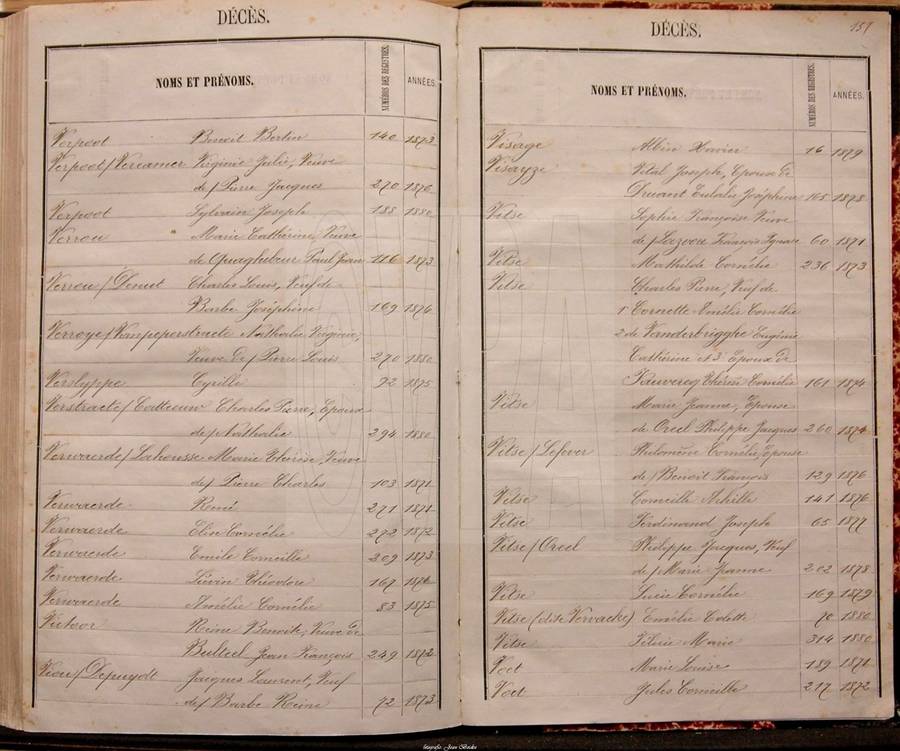 DÉCÈS.
NOMS ET PRÉNOMS. NUMÉROS DES REGISTRES. ANNÉES.
Verpoot Benoit Bertin 140 1873
Verpoot/Vercamer Virginie Julie, Veuve
de/ Pierre Jacques 270 1876
Verpoot Sylvain Joseph 188 1880
Verrou Marie Cathérine, Veuve
de Quaghebeur Paul Jean 116 1873
Verrou/Denut Charles Louis, Veuf de
Barbe Joséphine 169 1876
Verroye/Vampeperstracte Nathalie Virginie,
Veuve de/ Pierre Louis 270 1880
Verslyppe Cyrille 92 1875
Verstracte/Catteeuw Charles Pierre, Epoux
de/ Nathalie 294 1880
Verwaerde/Lahousse Marie Thérèse, Veuve
de/ Pierre Charles 103 1871
Verwaerde René 271 1871
Verwaerde Elise Cornélie 272 1872
Verwaerde Emile Corneille 209 1873
Verwaerde Liévin Théodore 167 1874
Verwaerde Amélie Cornélie 83 1875
Victoor Reine Benoite, Veuve de
Bulteel Jean François 249 1872
Viou/Depuydt Jacques Laurent, Veuf
de/ Barbe Reine 72 1873
DÉCÈS. 157
NOMS ET PRÉNOMS. NUMÉROS DES REGISTRES. ANNÉES.
Visage Albin Xavier 16 1879
Visayze Vital Joseph, Epoux de
Druant Eulalie Joséphine 165 1878
Vitse Sophie Françoise Veuve
de François Ignace 60 1871
Vitse Mathilde Cornélie 236 1873
Vitse Charles Pierre, Veuf de
1° Cornette Amélie Cornélie
2° de Vanderbrigghe Eugénie
Cathérine et 3° Epoux de
Pauwereq Thérèse Cornélie 161 1874
Vitse Marie Jeanne, Epouse
de Oreel Philippe Jacques 260 1874
Vitse/Lefever Philomène Cornélie, Epouse
de/ Benoit François 129 1876
Vitse Corneille Achille 141 1876
Vitse Ferdinand Joseph 65 1877
Vitse/Oreel Philippe Jacques, Veuf
de/ Marie Jeanne 202 1878
Vitse Lucie Cornélie 169 1879
Vitse (dite Vervacke) Emélie Colette 70 1880
Vitse Silvie Marie 314 1880
Voet Marie Louise 189 1871
Voet Jules Corneille 217 1872